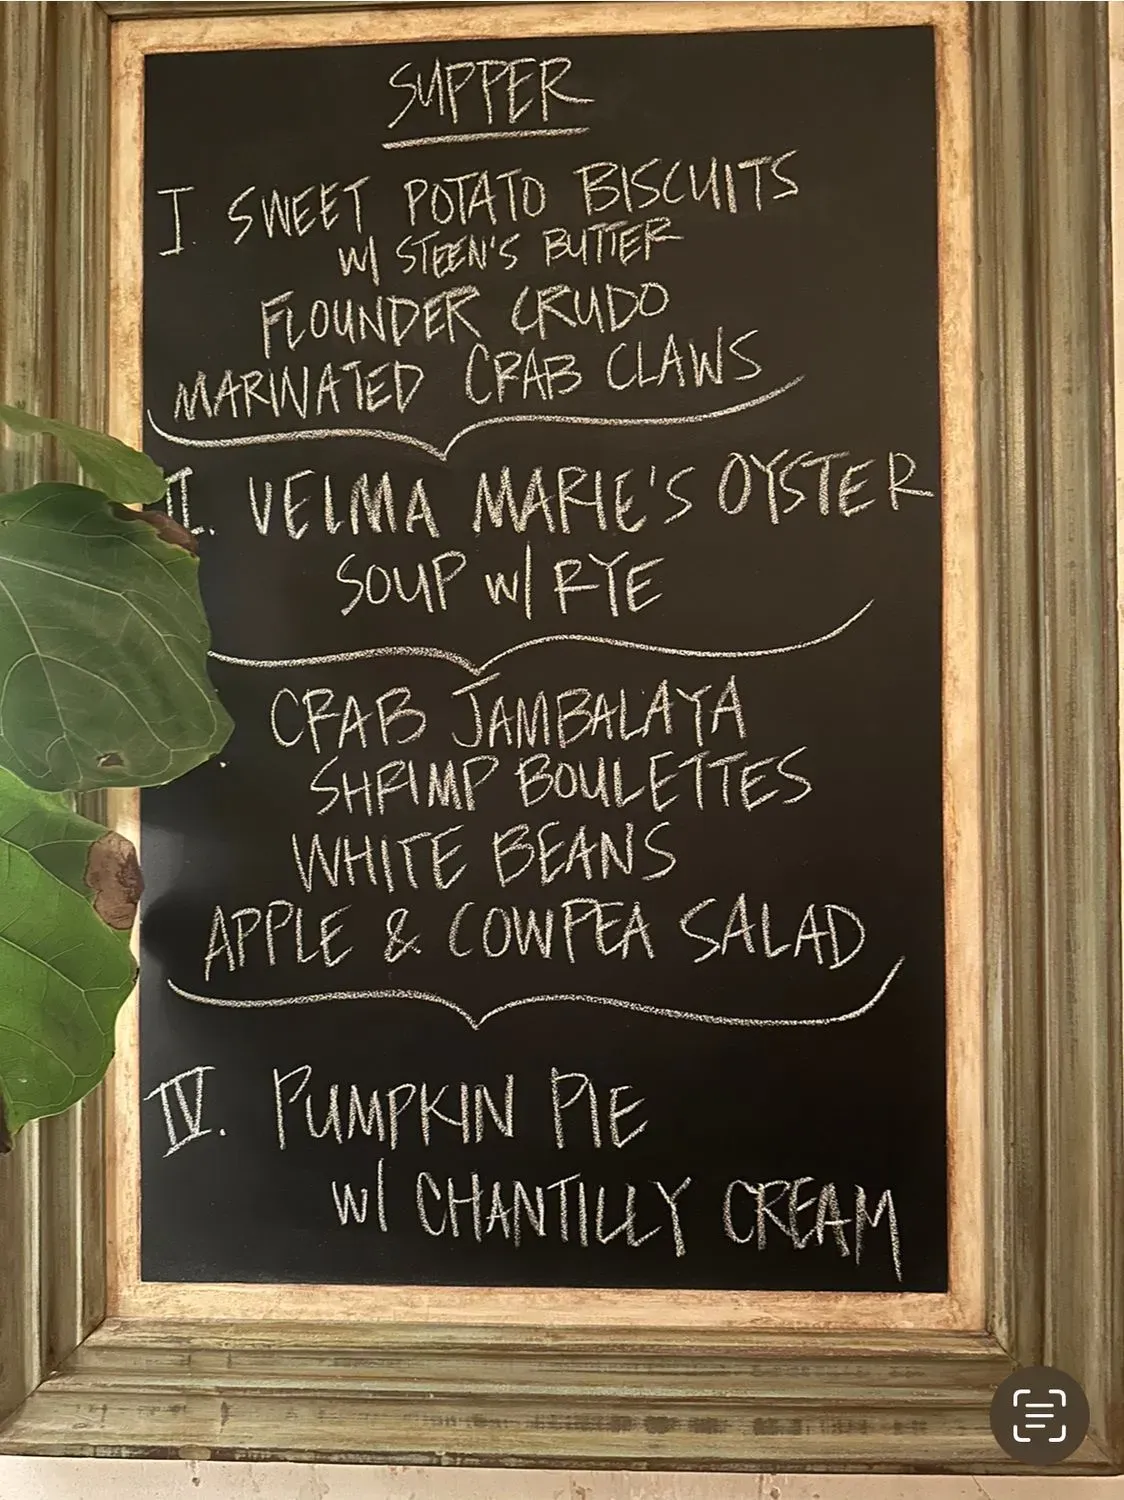 SUPPER
I SWEET POTATO BISCUITS
W/ STEEN'S BUTTER
FLOUNDER CRUDO
MARINATED CRAB CLAWS
II. VELMA MARIE'S OYSTER
SOUP W/ RYE
CRAB JAMBALAYA
SHRIMP BOULETTES
WHITE BEANS
APPLE & COWPEA SALAD
IV. PUMPKIN PIE
W/ CHANTILLY CREAM